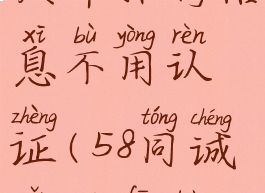 xī bù yòng rèn
息不用认
zhèng tóng chéng
证(58同诚